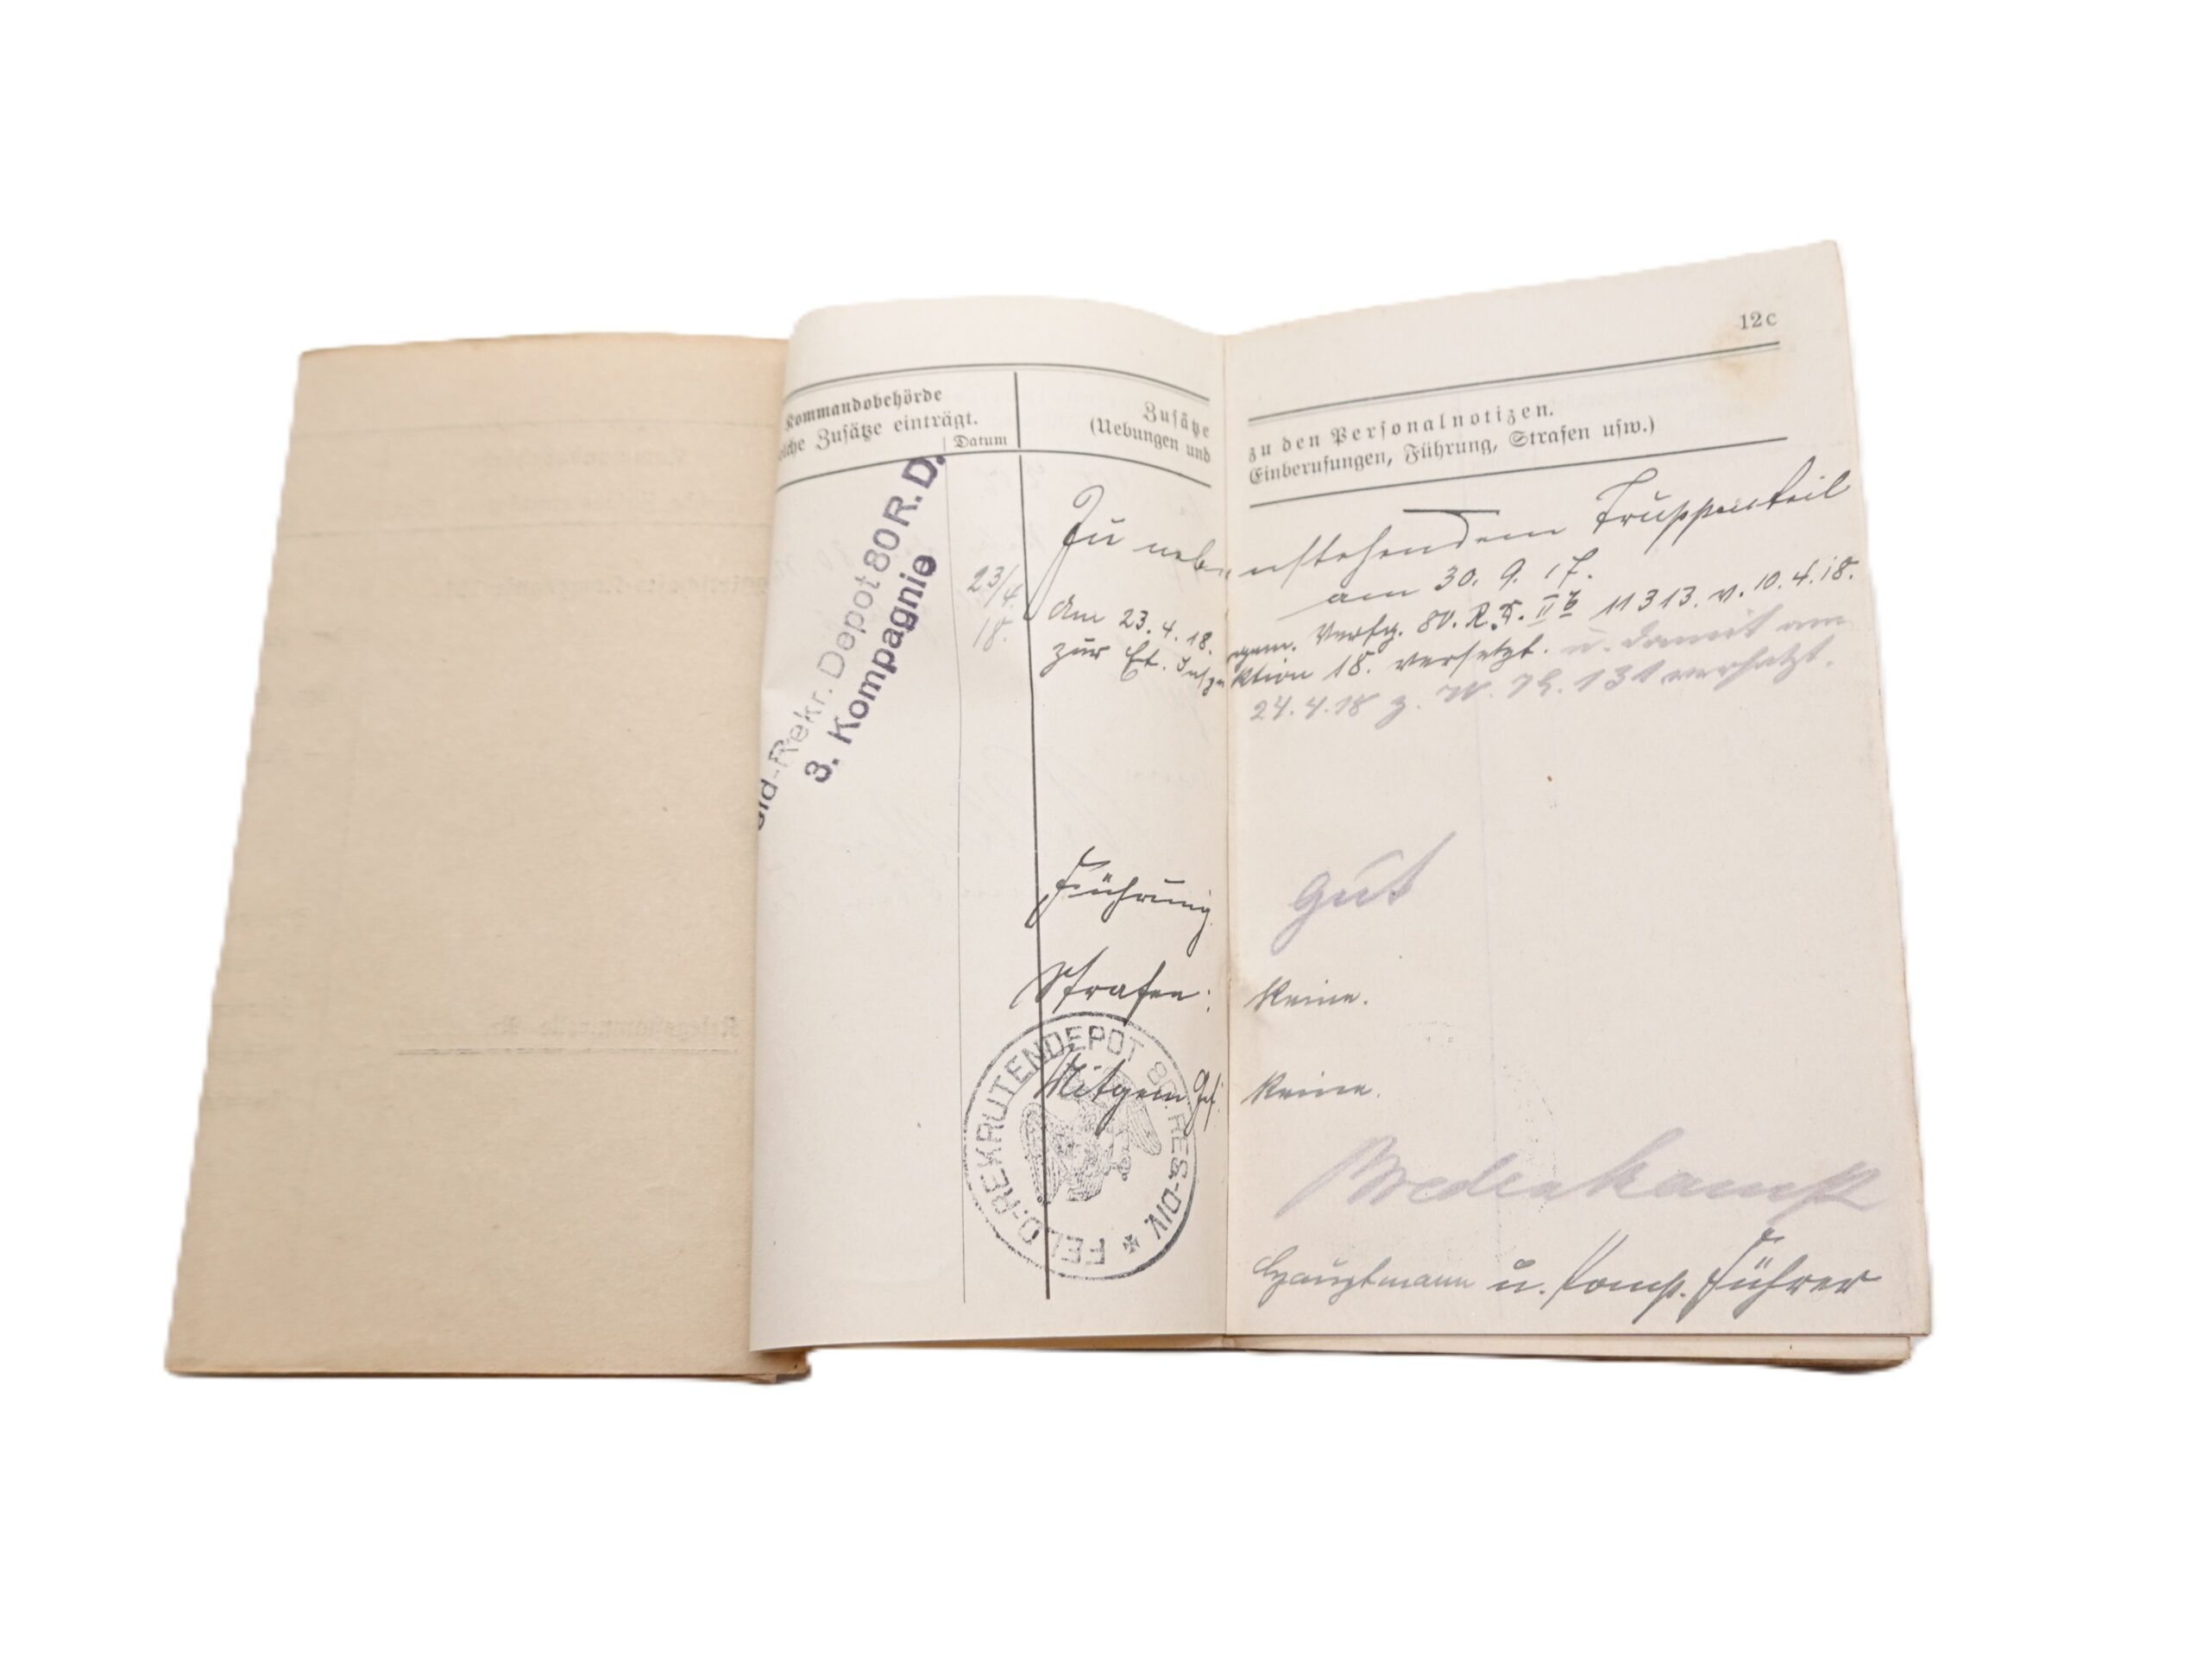 12c
Kommandobehörde
Zusätze einträgt.
Datum
Zusätze zu den Personalnotizen.
(Uebungen und Einberufungen, Führung, Strafen usw.)
Feld-Rekr. Depot 80 R. D.
3. Kompagnie
23/4.
18.
Zu nebenstehendem Truppenteil
am 30. 9. 17.
Am 23. 4. 18. gem. Verfg. 80. R. D. II b 11313. v. 10. 4. 18.
zur Et. Inspektion 18. versetzt. u. damit am
24. 4. 18 z. 131 versetzt.
Führung gut
Strafen: Keine.
Mitgem. Gef: Keine.
FELD-REKRUTENDEPOT 80. RES.-DIV.
Bredenkamp
Hauptmann u. Komp. Führer